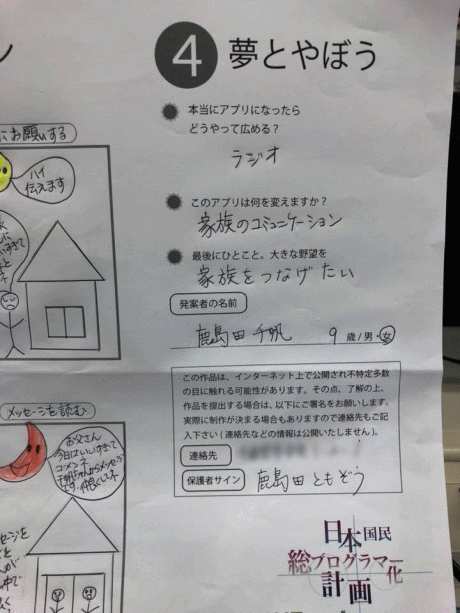 にお願いする
ハイ
伝えます
メッセージを読む
お父さん
今日はいいすぎて
コメンネ
仲良くしてネ
4 夢とやぼう
本当にアプリになったら
どうやって広める?
ラジオ
このアプリは何を変えますか?
家族のコミュニケーション
最後にひとこと。大きな野望を
家族をつなげたい
発案者の名前
鹿島田千帆 9 歳/男・女
この作品は、インターネット上で公開され不特定多数
の目に触れる可能性があります。その点、了解の上、
作品を提出する場合は、以下にご署名をお願いします。
実際に制作が決まる場合もありますので連絡先もご記
入下さい(連絡先などの情報は公開いたしません)。
連絡先
保護者サイン 鹿島田ともぞう
日本国民
総プログラマー化
計画